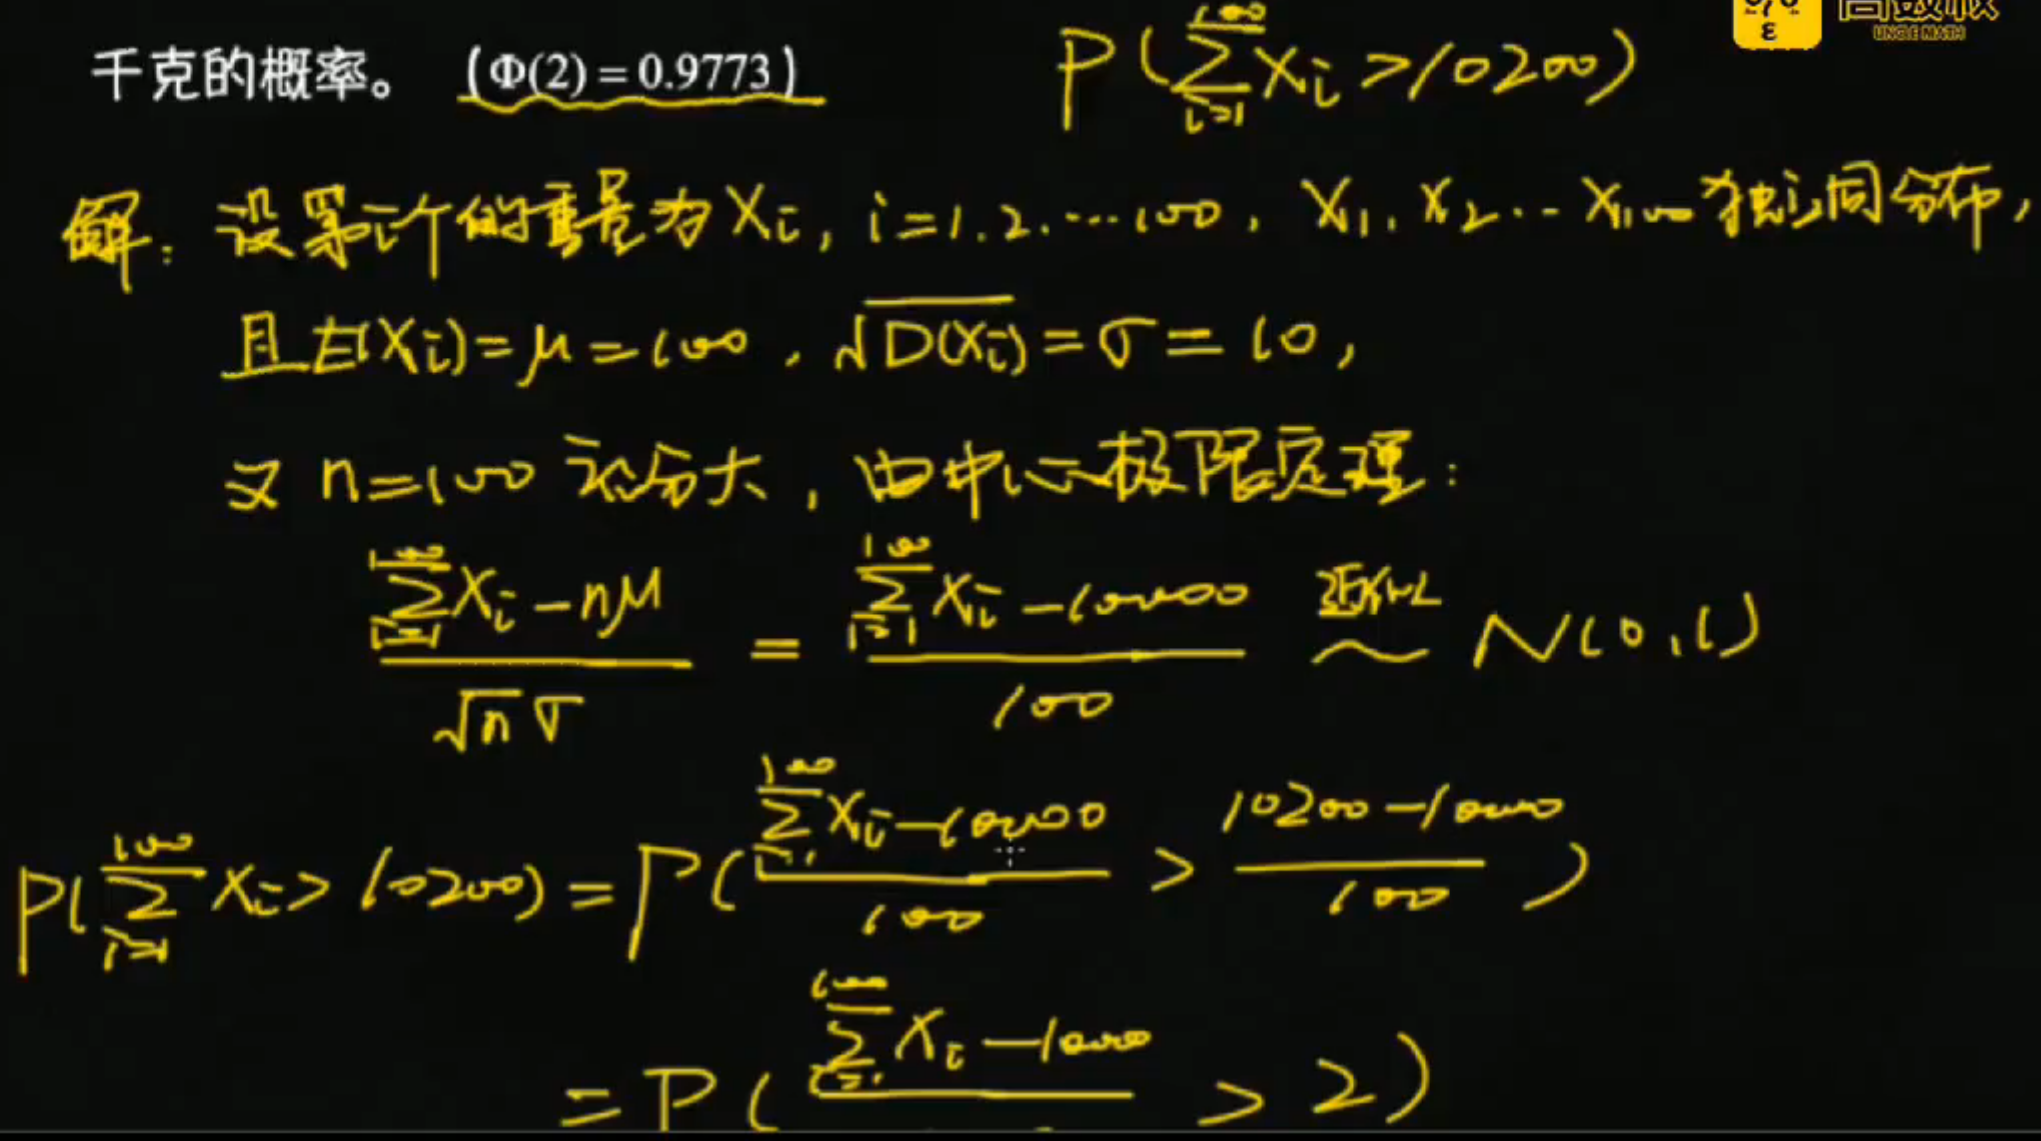 千克的概率。 (Φ(2) = 0.9773) P(∑_{i=1}^{100} Xi > 10200)
UNCLE MATH
解：设第i个的重量为Xi, i=1.2.…100, X1, X2…X100独立同分布,
且E(Xi)=μ=100, √D(Xi)=σ=10,
又 n=100充分大, 由中心极限定理:
(∑_{i=1}^{100} Xi - nμ)/(√n σ) = (∑_{i=1}^{100} Xi - 10000)/100 近似 ~ N(0,1)
P(∑_{i=1}^{100} Xi > 10200) = P((∑_{i=1}^{100} Xi - 10000)/100 > (10200-10000)/100)
= P(∑_{i=1}^{100} Xi - 10000 > 2)